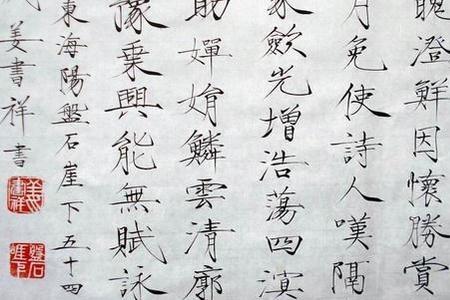 魄澄鮮因懷勝賞
月免使詩人嘆隔
象歛光增浩蕩四溟
助嬋娟鱗雲清廓
豫乘興能無賦詠
東海陽盤石崖下五十四
姜書祥書